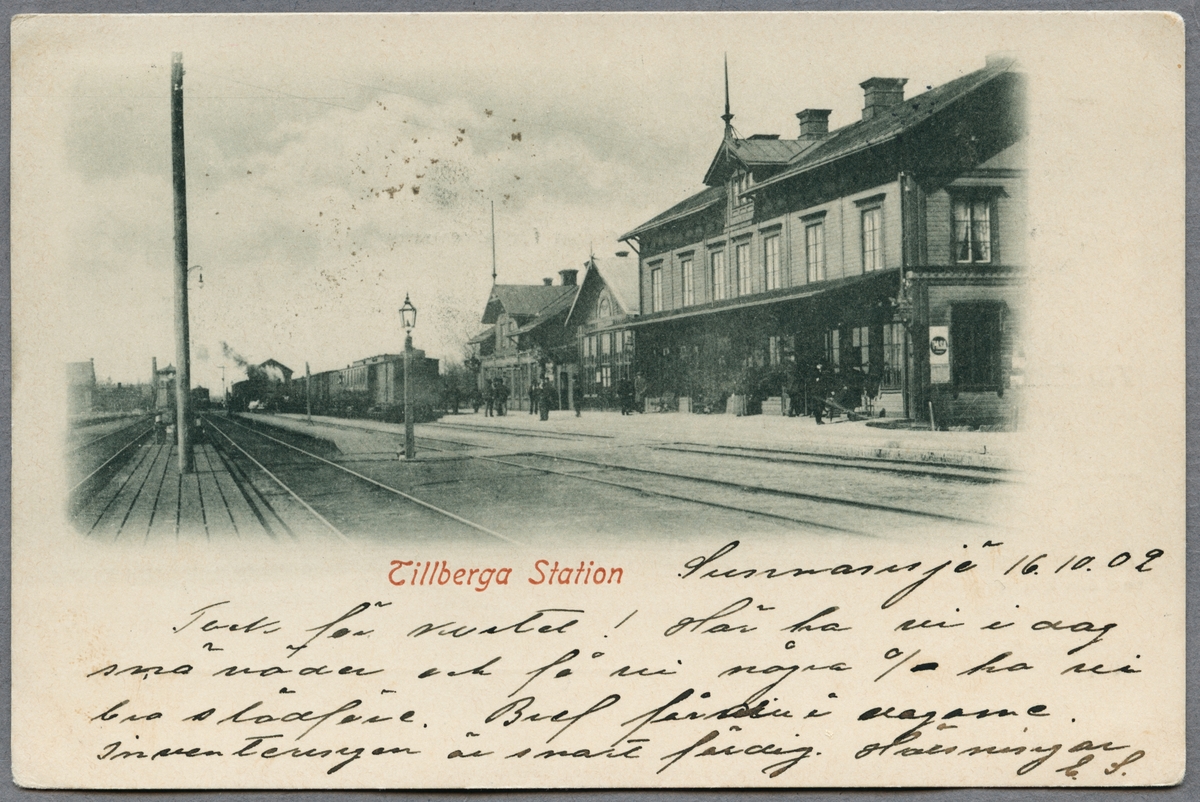 Tillberga Station
Sunnansjö 16.10.02
Tack för kortet! Här ha vi i dag
snöväder och få vi några % ha vi
bra slädföre. Bref får du i dagarne.
Inventeringen är snart färdig. Hälsningar
E. S.